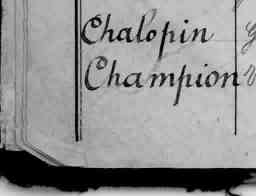 Chalopin
Champion